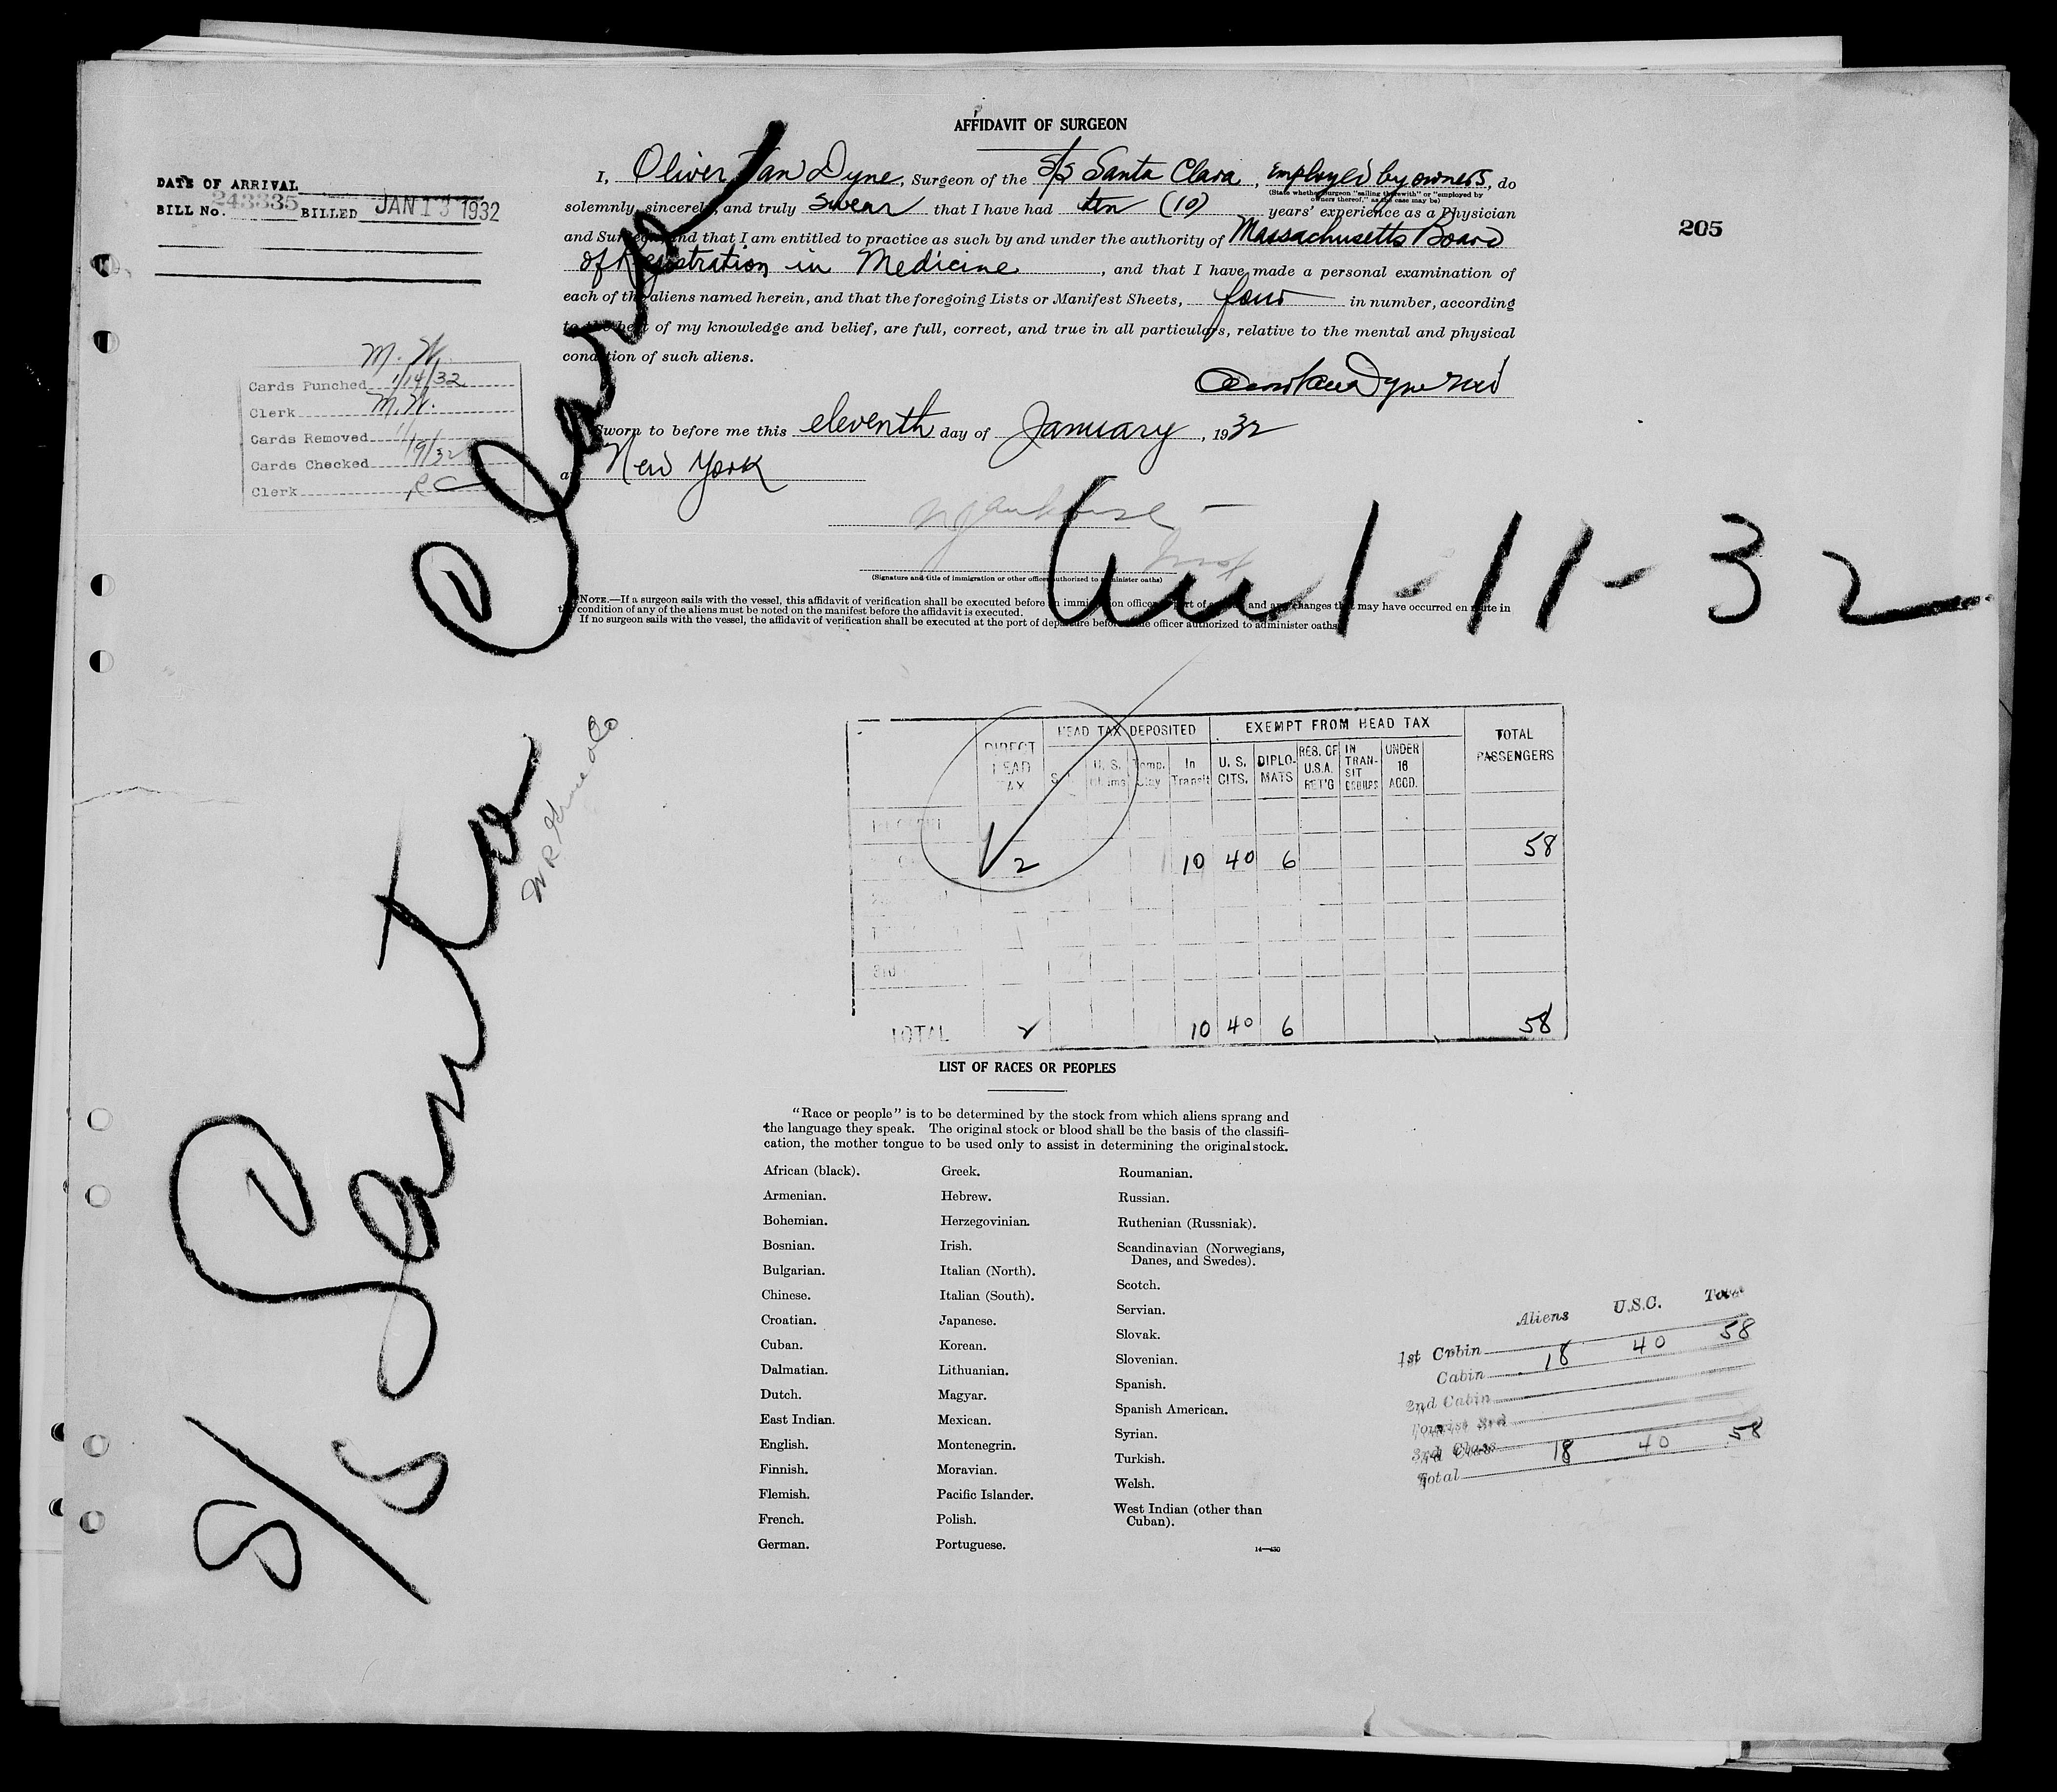 AFFIDAVIT OF SURGEON
DATE OF ARRIVAL
BILL No. 243335 BILLED JAN 13 1932
205
I, Oliver Van Dyne, Surgeon of the S/S Santa Clara, employed by owners, do
(State whether surgeon "sailing therewith" or "employed by
owners thereof," as the case may be)
solemnly, sincerely, and truly swear that I have had ten (10) years' experience as a Physician
and Surgeon, and that I am entitled to practice as such by and under the authority of Massachusetts Board
of Registration in Medicine, and that I have made a personal examination of
each of the aliens named herein, and that the foregoing Lists or Manifest Sheets, four in number, according
to the best of my knowledge and belief, are full, correct, and true in all particulars, relative to the mental and physical
condition of such aliens.
M. W.
Cards Punched 1/14/32
Clerk M. W.
Cards Removed
Cards Checked 1/19/32
Clerk RC
Sworn to before me this eleventh day of January, 1932
at New York
(Signature and title of immigration or other officer authorized to administer oaths)
NOTE.—If a surgeon sails with the vessel, this affidavit of verification shall be executed before an immigration officer at port of arrival and any changes that may have occurred en route in
the condition of any of the aliens must be noted on the manifest before the affidavit is executed.
If no surgeon sails with the vessel, the affidavit of verification shall be executed at the port of departure before the officer authorized to administer oaths
S/S Santa Clara
1-11-32
DIRECT HEAD TAX HEAD TAX DEPOSITED EXEMPT FROM HEAD TAX TOTAL PASSENGERS
U. S. Claims Temp. Stay In Transit U. S. CITS. DIPLO-MATS RES. OF U.S.A. RET'G IN TRAN-SIT UNDER 16 ACCD.
2 10 40 6 58
TOTAL 2 10 40 6 58
LIST OF RACES OR PEOPLES
"Race or people" is to be determined by the stock from which aliens sprang and
the language they speak. The original stock or blood shall be the basis of the classifi-
cation, the mother tongue to be used only to assist in determining the original stock.
African (black).
Armenian.
Bohemian.
Bosnian.
Bulgarian.
Chinese.
Croatian.
Cuban.
Dalmatian.
Dutch.
East Indian.
English.
Finnish.
Flemish.
French.
German.
Greek.
Hebrew.
Herzegovinian.
Irish.
Italian (North).
Italian (South).
Japanese.
Korean.
Lithuanian.
Magyar.
Mexican.
Montenegrin.
Moravian.
Pacific Islander.
Polish.
Portuguese.
Roumanian.
Russian.
Ruthenian (Russniak).
Scandinavian (Norwegians,
Danes, and Swedes).
Scotch.
Servian.
Slovak.
Slovenian.
Spanish.
Spanish American.
Syrian.
Turkish.
Welsh.
West Indian (other than
Cuban).
14—430
Aliens U.S.C. Total
1st Cabin 18 40 58
Cabin
2nd Cabin
Tourist 3rd
3rd Class
Total 18 40 58